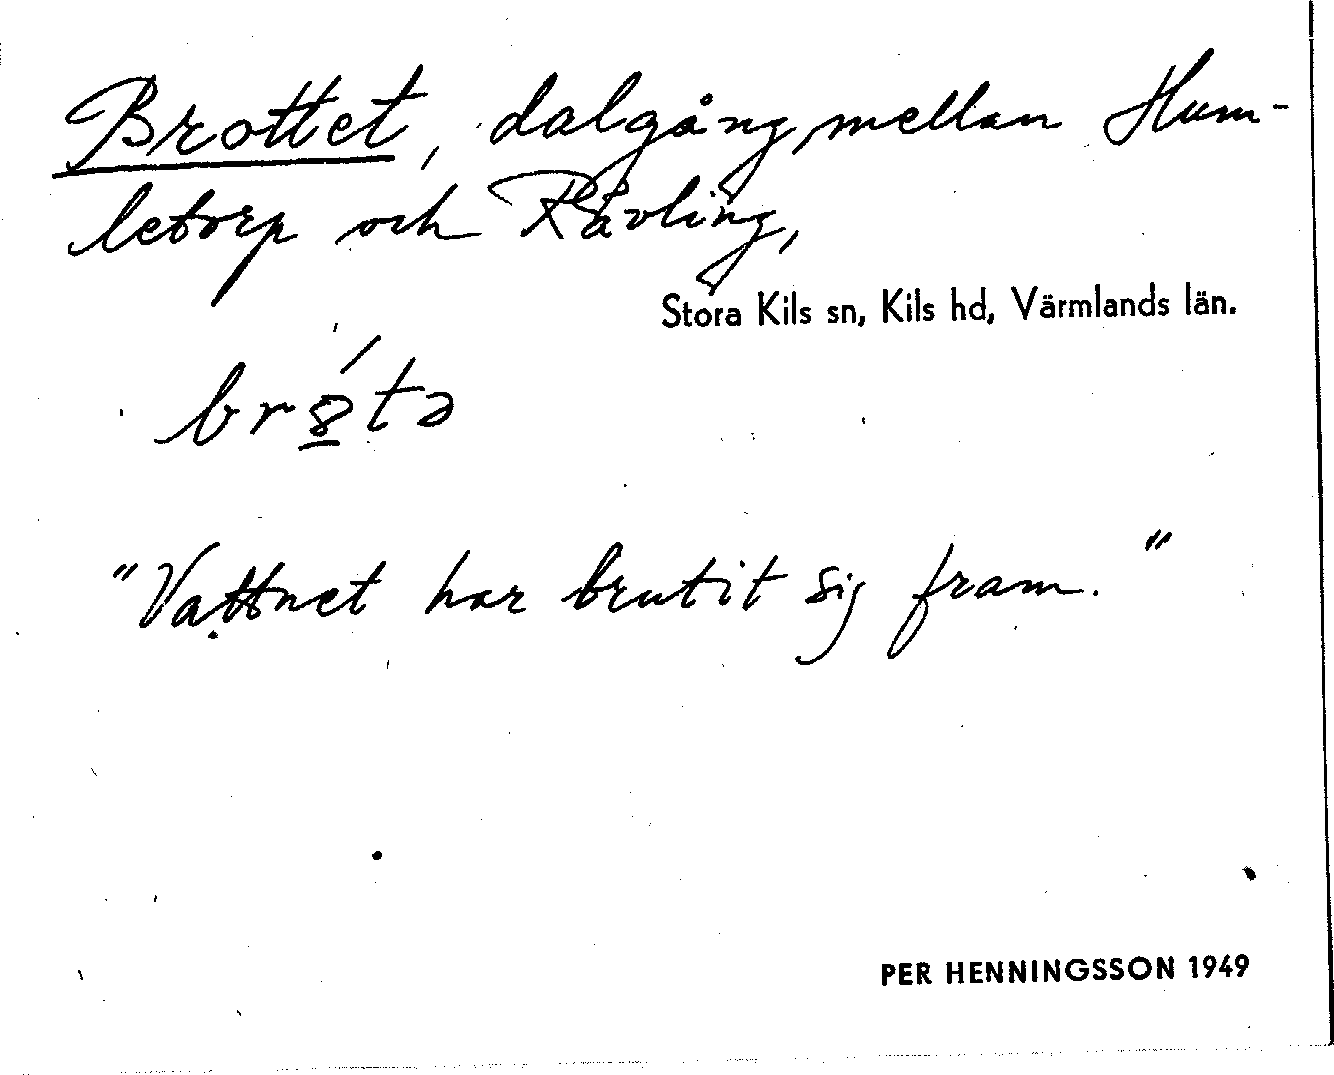 Brottet, dalgång mellan Hum-
letorp och Rävling,
Stora Kils sn, Kils hd, Värmlands län.
"Vattnet har brutit sig fram."
PER HENNINGSSON 1949